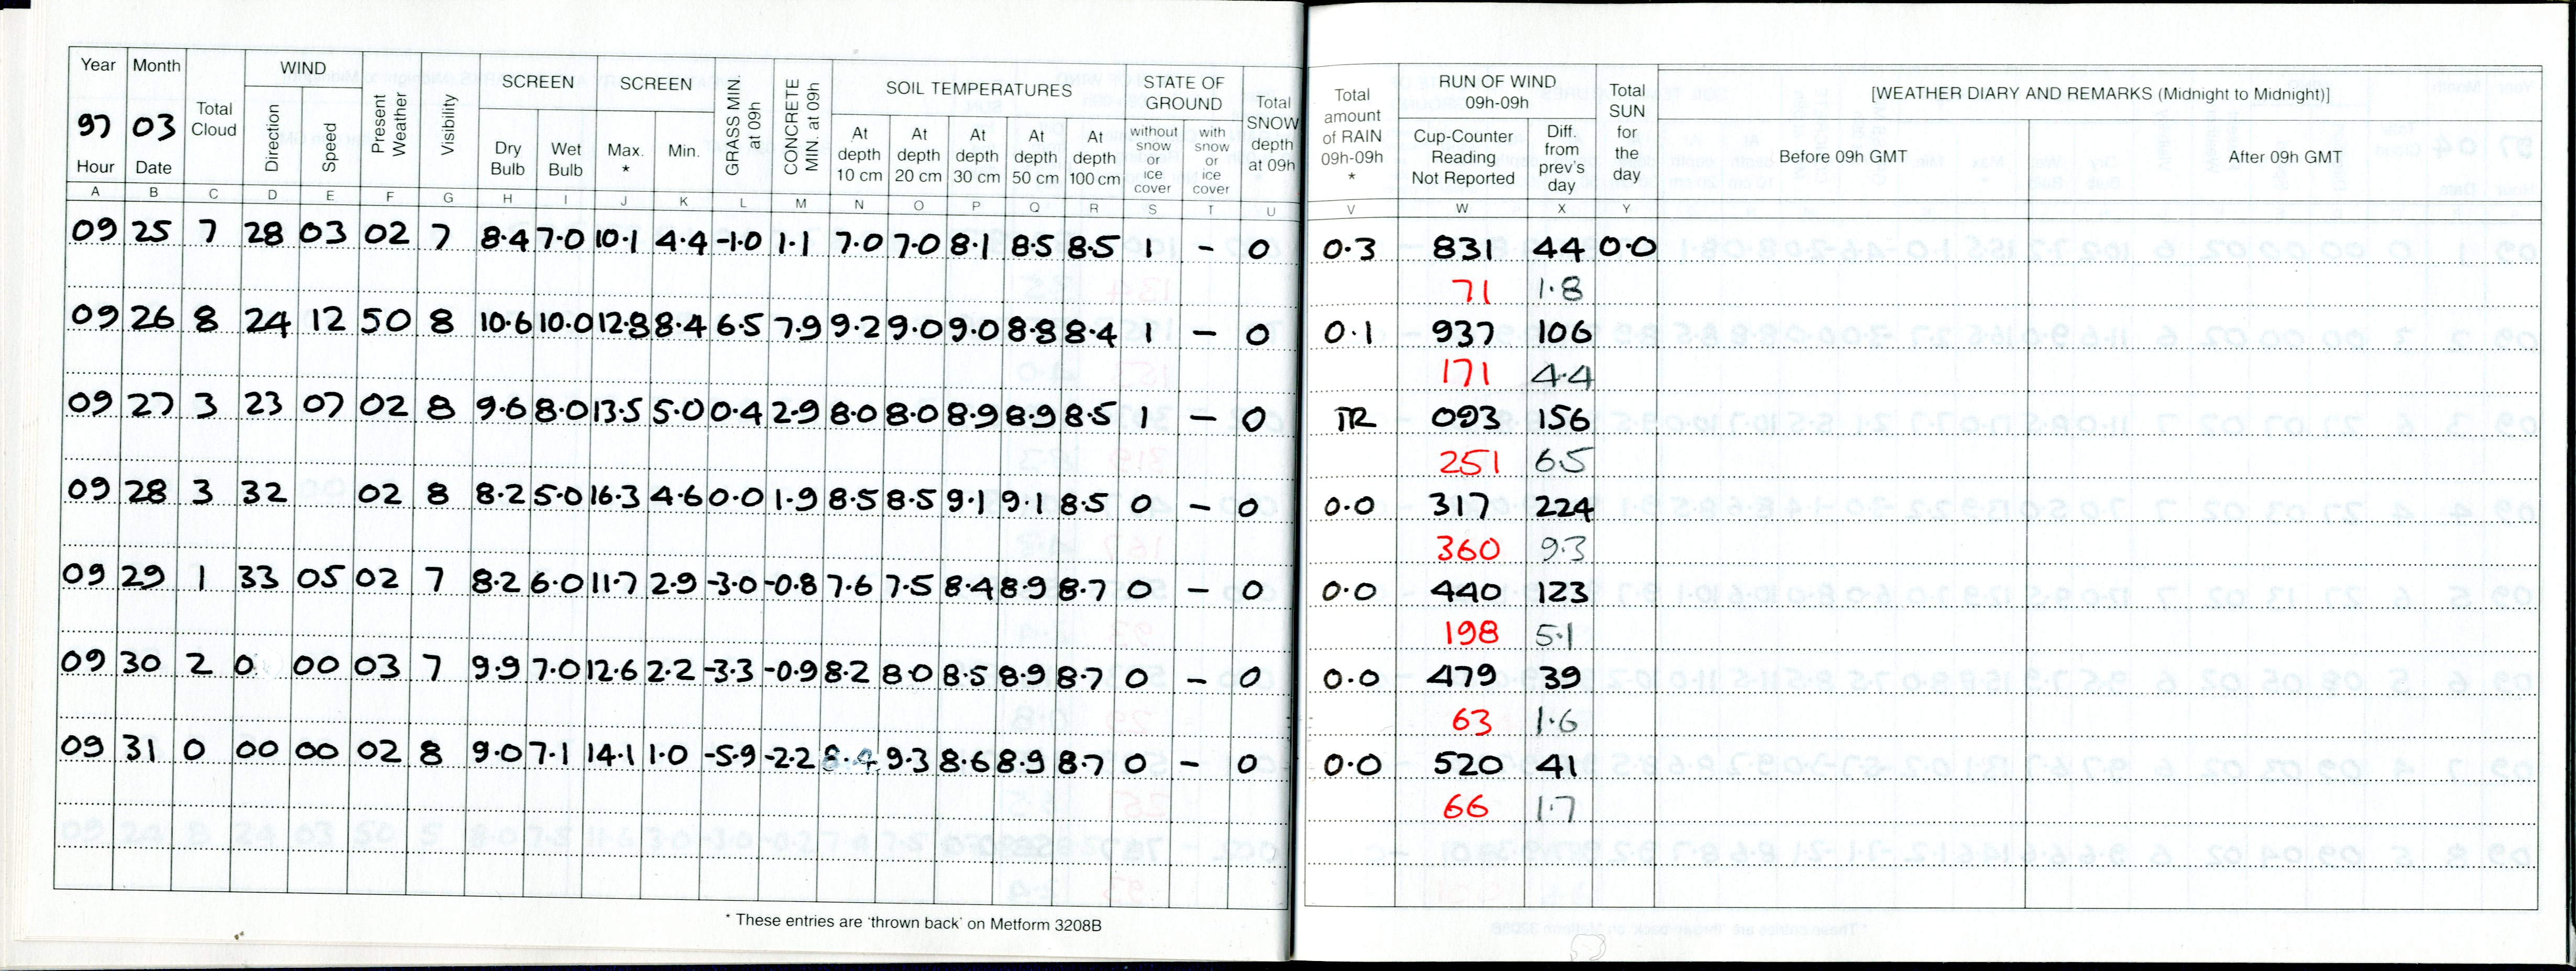 Year Month
97 03
Hour Date
Total Cloud
WIND
Direction Speed
Present Weather
Visibility
SCREEN
Dry Bulb Wet Bulb
SCREEN
Max. * Min.
GRASS MIN. at 09h
CONCRETE MIN. at 09h
SOIL TEMPERATURES
At depth 10 cm At depth 20 cm At depth 30 cm At depth 50 cm At depth 100 cm
STATE OF GROUND
without snow or ice cover with snow or ice cover
Total SNOW depth at 09h
Total amount of RAIN 09h-09h *
RUN OF WIND 09h-09h
Cup-Counter Reading Not Reported
Diff. from prev's day
Total SUN for the day
[WEATHER DIARY AND REMARKS (Midnight to Midnight)]
Before 09h GMT After 09h GMT
A B C D E F G H I J K L M N O P Q R S T U V W X Y
09 25 7 28 03 02 7 8.4 7.0 10.1 4.4 -1.0 1.1 7.0 7.0 8.1 8.5 8.5 1 - 0 0.3 831 44 0.0
71 1.8
09 26 8 24 12 50 8 10.6 10.0 12.8 8.4 6.5 7.9 9.2 9.0 9.0 8.8 8.4 1 - 0 0.1 937 106
171 4.4
09 27 3 23 07 02 8 9.6 8.0 13.5 5.0 0.4 2.9 8.0 8.0 8.9 8.9 8.5 1 - 0 TR 093 156
251 6.5
09 28 3 32 02 8 8.2 5.0 16.3 4.6 0.0 1.9 8.5 8.5 9.1 9.1 8.5 0 - 0 0.0 317 224
360 9.3
09 29 1 33 05 02 7 8.2 6.0 11.7 2.9 -3.0 -0.8 7.6 7.5 8.4 8.9 8.7 0 - 0 0.0 440 123
198 5.1
09 30 2 0 00 03 7 9.9 7.0 12.6 2.2 -3.3 -0.9 8.2 8.0 8.5 8.9 8.7 0 - 0 0.0 479 39
63 1.6
09 31 0 00 00 02 8 9.0 7.1 14.1 1.0 -5.9 -2.2 8.4 9.3 8.6 8.9 8.7 0 - 0 0.0 520 41
66 1.7
* These entries are 'thrown back' on Metform 3208B